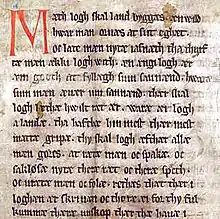 Mæth logh skal land byggæs. æn wild
hwær man oruæs at sit eghæt
oc latæ mæn nytæ iafnæth tha thyrf
tæ mæn ækki logh with. æn ængi logh ær
æm gooth at fylæghæ sum sannænd. hwaræ
sum mæn æuær um sannænd. thær skal
logh letæ hwilt ræt ær. waræ æi logh
a landæ. tha hafthæ hin mest thær mest
mattæ gripæ. thy skal logh æfthær allæ
mæn gøræs. at rætæ mæn oc spakæ. oc
sakløsæ nytæ theræ ræt oc theræ spækh.
oc uretæ mæn oc folæ. rethæs that thær i
loghæn ær skriuæt oc thoræ æi for thy ful
kumnæ theræ unskop thær the hauæ i